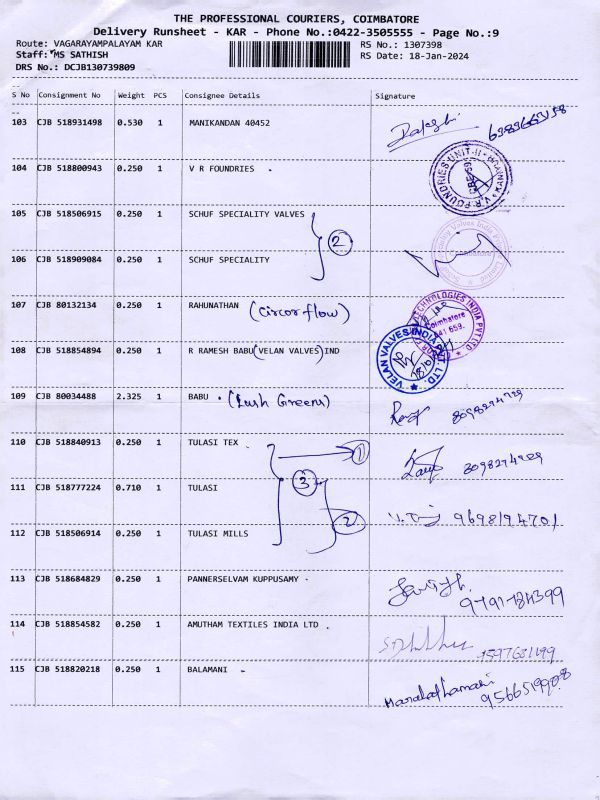 THE PROFESSIONAL COURIERS, COIMBATORE
Delivery Runsheet - KAR - Phone No.:0422-3505555 - Page No.:9
Route: VAGARAYAMPALAYAM KAR
RS No.: 1307398
Staff: MS SATHISH
RS Date: 18-Jan-2024
DRS No.: DCJB130739809
S No Consignment No Weight PCS Consignee Details Signature
103 CJB 518931498 0.530 1 MANIKANDAN 40452
104 CJB 518800943 0.250 1 V R FOUNDRIES
105 CJB 518506915 0.250 1 SCHUF SPECIALITY VALVES
2
106 CJB 518909084 0.250 1 SCHUF SPECIALITY
107 CJB 80132134 0.250 1 RAHUNATHAN (Circor flow)
108 CJB 518854894 0.250 1 R RAMESH BABU(VELAN VALVES)IND
VELAN VALVES INDIA PVT. LTD.
109 CJB 80034488 2.325 1 BABU (Lush Greens) 8098274929
110 CJB 518840913 0.250 1 TULASI TEX 1 8098274929
111 CJB 518777224 0.710 1 TULASI 3
2 9698194701
112 CJB 518506914 0.250 1 TULASI MILLS
113 CJB 518684829 0.250 1 PANNERSELVAM KUPPUSAMY
114 CJB 518854582 0.250 1 AMUTHAM TEXTILES INDIA LTD
115 CJB 518820218 0.250 1 BALAMANI